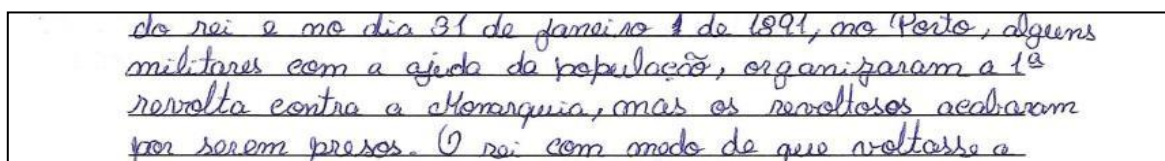 do rei e no dia 31 de Janeiro de 1891, no Porto, alguns
militares com a ajuda da população, organizaram a 1ª
revolta contra a Monarquia, mas os revoltosos acabaram
por serem presos. O rei com medo de que voltasse a